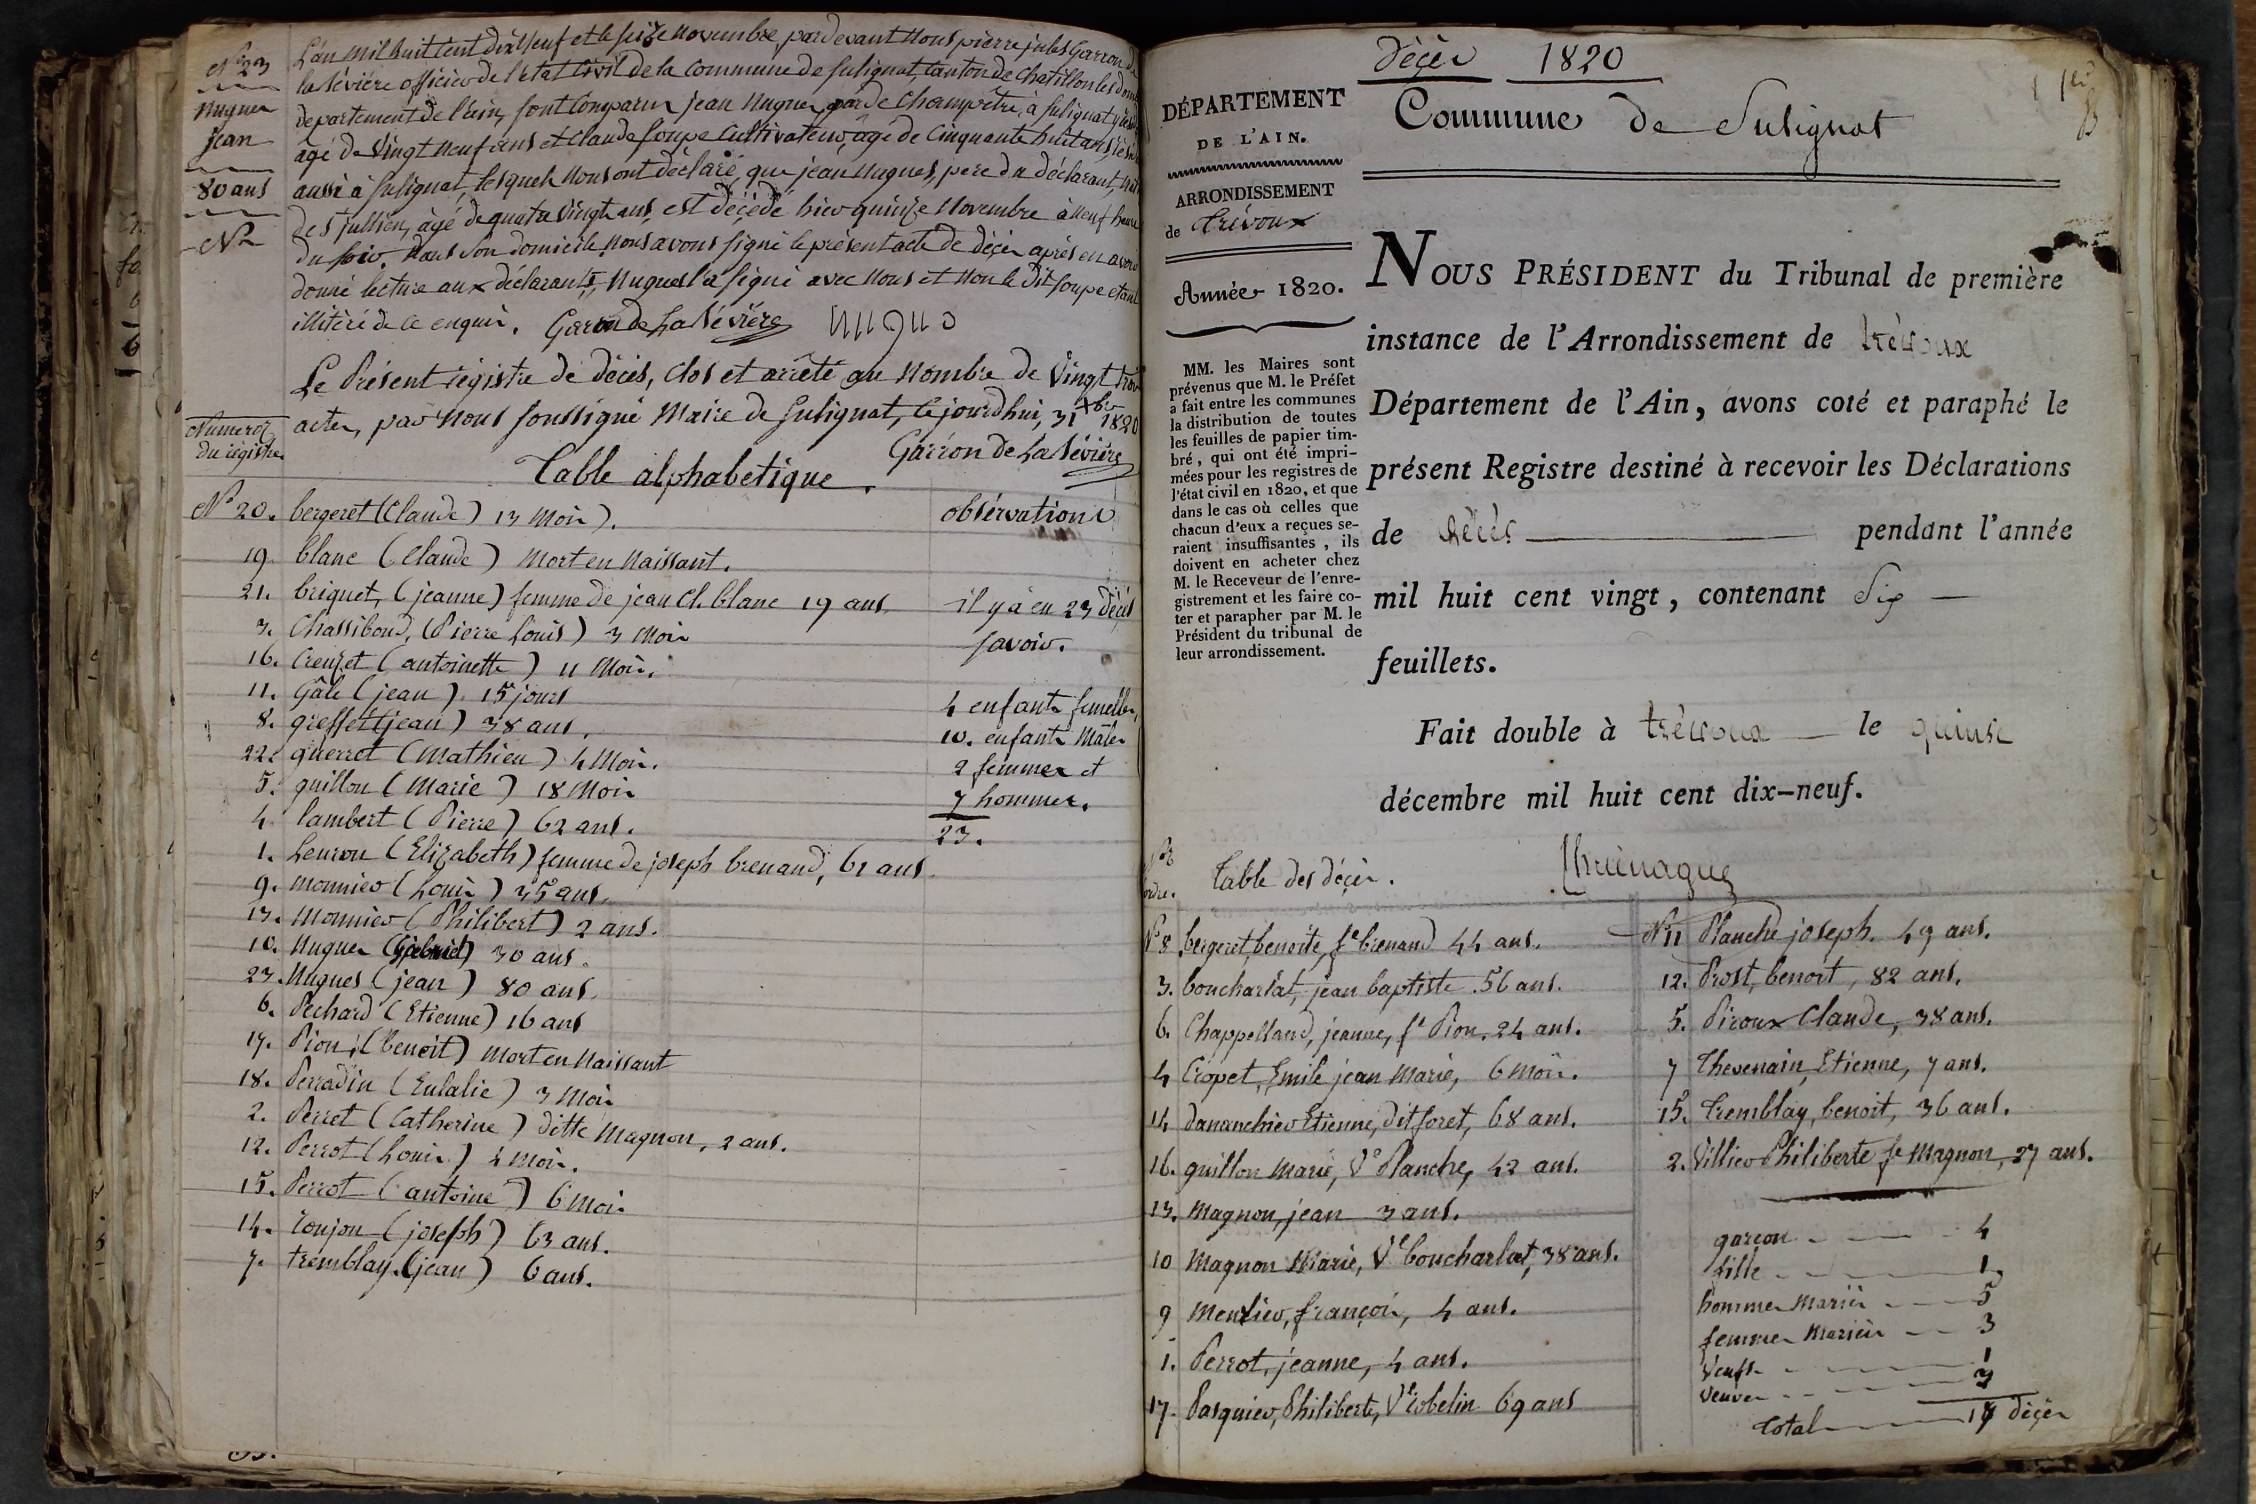 N° 23
Nugues
jean
80 ans
L'an mil huit cent dix neuf et le seize novembre, pardevant nous pierre jules Garron de
la sévière officier de l'état civil de la commune de sulignat, canton de chatillon les
departement de l'ain, sont comparus jean Nugues, garde champêtre, à sulignat
agé de vingt neuf ans et claude soupe cultivateur, âgé de cinquante huit ans,
aussi à sulignat, lesquels nous ont déclaré, que jean nugues, pere du déclarant,
de st jullien, âgé de quatre vingt ans, est décédé hier quinze novembre à neuf heures
du soir, dans son domicile, nous avons signé le présent acte de décès après en avoir
donné lecture aux déclarants, nugues l'a signé avec nous et non le dit soupe étant
illitéré de ce enquis. Garron de La Sévière nugues
Le Présent registre de décès, clos et arrêté au nombre de vingt trois
actes, par nous soussigné Maire de sulignat, cejourd'hui, 31 Xbre 1820
Garron de La Sévière
Numeros
du régistre
Table alphabetique.
observations
N° 20. bergeret (Claude) 13 Mois).
19. blanc (Claude) mort en naissant.
21. briquet, (jeanne) femme de jean Cl. blanc 19 ans
3. Chassiboud, (Pierre Louis) 3 Mois
16. Creuzet (antoinette) 11 Mois.
11. Gâle (jean) 15 jours
8. greffet (jean) 38 ans.
22. guerret (Mathieu) 4 Mois.
5. guillon (Marie) 18 Mois
4 lambert (Pierre) 62 ans.
1. Leuron (Elizabeth) femme de joseph brenand, 61 ans.
9. monnier (Louis) 35 ans.
13. Monnier (Philibert) 2 ans.
10. Nugues (gabriel) 30 ans.
23. Nugues (jean) 80 ans.
6. Pechard (Etienne) 16 ans
17. Pion, (Benoit) mort en naissant
18. Perradin (Eulalie) 3 Mois
2. Perret (Catherine) ditte Magnon, 2 ans.
12. Perrot (Louis) 4 Mois.
15. Perrot (antoine) 6 Mois
14. Toujon (joseph) 63 ans.
7. tremblay (jean) 6 ans.
il y a eu 23 décès
savoir.
4 enfants femelles,
10. enfants Mâles
2 femmes et
7 hommes.
23.
décès 1820
Commune de Sulignat
1 1er
DÉPARTEMENT
DE L'AIN.
ARRONDISSEMENT
de Trévoux
Année 1820.
MM. les Maires sont
prévenus que M. le Préfet
a fait entre les communes
la distribution de toutes
les feuilles de papier tim-
bré, qui ont été impri-
mées pour les registres de
l'état civil en 1820, et que
dans le cas où celles que
chacun d'eux a reçues se-
raient insuffisantes, ils
doivent en acheter chez
M. le Receveur de l'enre-
gistrement et les faire co-
ter et parapher par M. le
Président du tribunal de
leur arrondissement.
NOUS PRÉSIDENT du Tribunal de première
instance de l'Arrondissement de trévoux
Département de l'Ain, avons coté et paraphé le
présent Registre destiné à recevoir les Déclarations
de décès pendant l'année
mil huit cent vingt, contenant Six
feuillets.
Fait double à trévoux le quinze
décembre mil huit cent dix-neuf.
Nos
ordre.
Table des décès.
N° 8 bergeret, benoite, fe brenand 44 ans.
3. boucharlat, jean baptiste. 56 ans.
6. Chappelland, jeanne, fe Pion, 24 ans.
4 Cropet, Emile jean Marie, 6 mois.
14 dananchier Etienne, dit foret, 68 ans.
16. guillon marie, Ve Planche, 42 ans.
13. Magnon, jean 3 ans.
10 Magnon Marie, Ve boucharlat, 38 ans.
9 Mentier, françois, 4 ans.
1. Perrot, jeanne, 4 ans.
17. Pasquier, Philiberte, Ve Robelin 69 ans
N° 11 Planche joseph. 49 ans.
12. Prost, benoit, 82 ans.
5. Piroux Claude, 38 ans.
7 Thevenain, Etienne, 7 ans.
15. Tremblay, benoit, 36 ans.
2. Villier Philiberte fe Magnon, 27 ans.
garçon 4
fille 1
hommes mariés 5
femmes mariées 3
Veufs 1
veuves 3
Total 17 décès